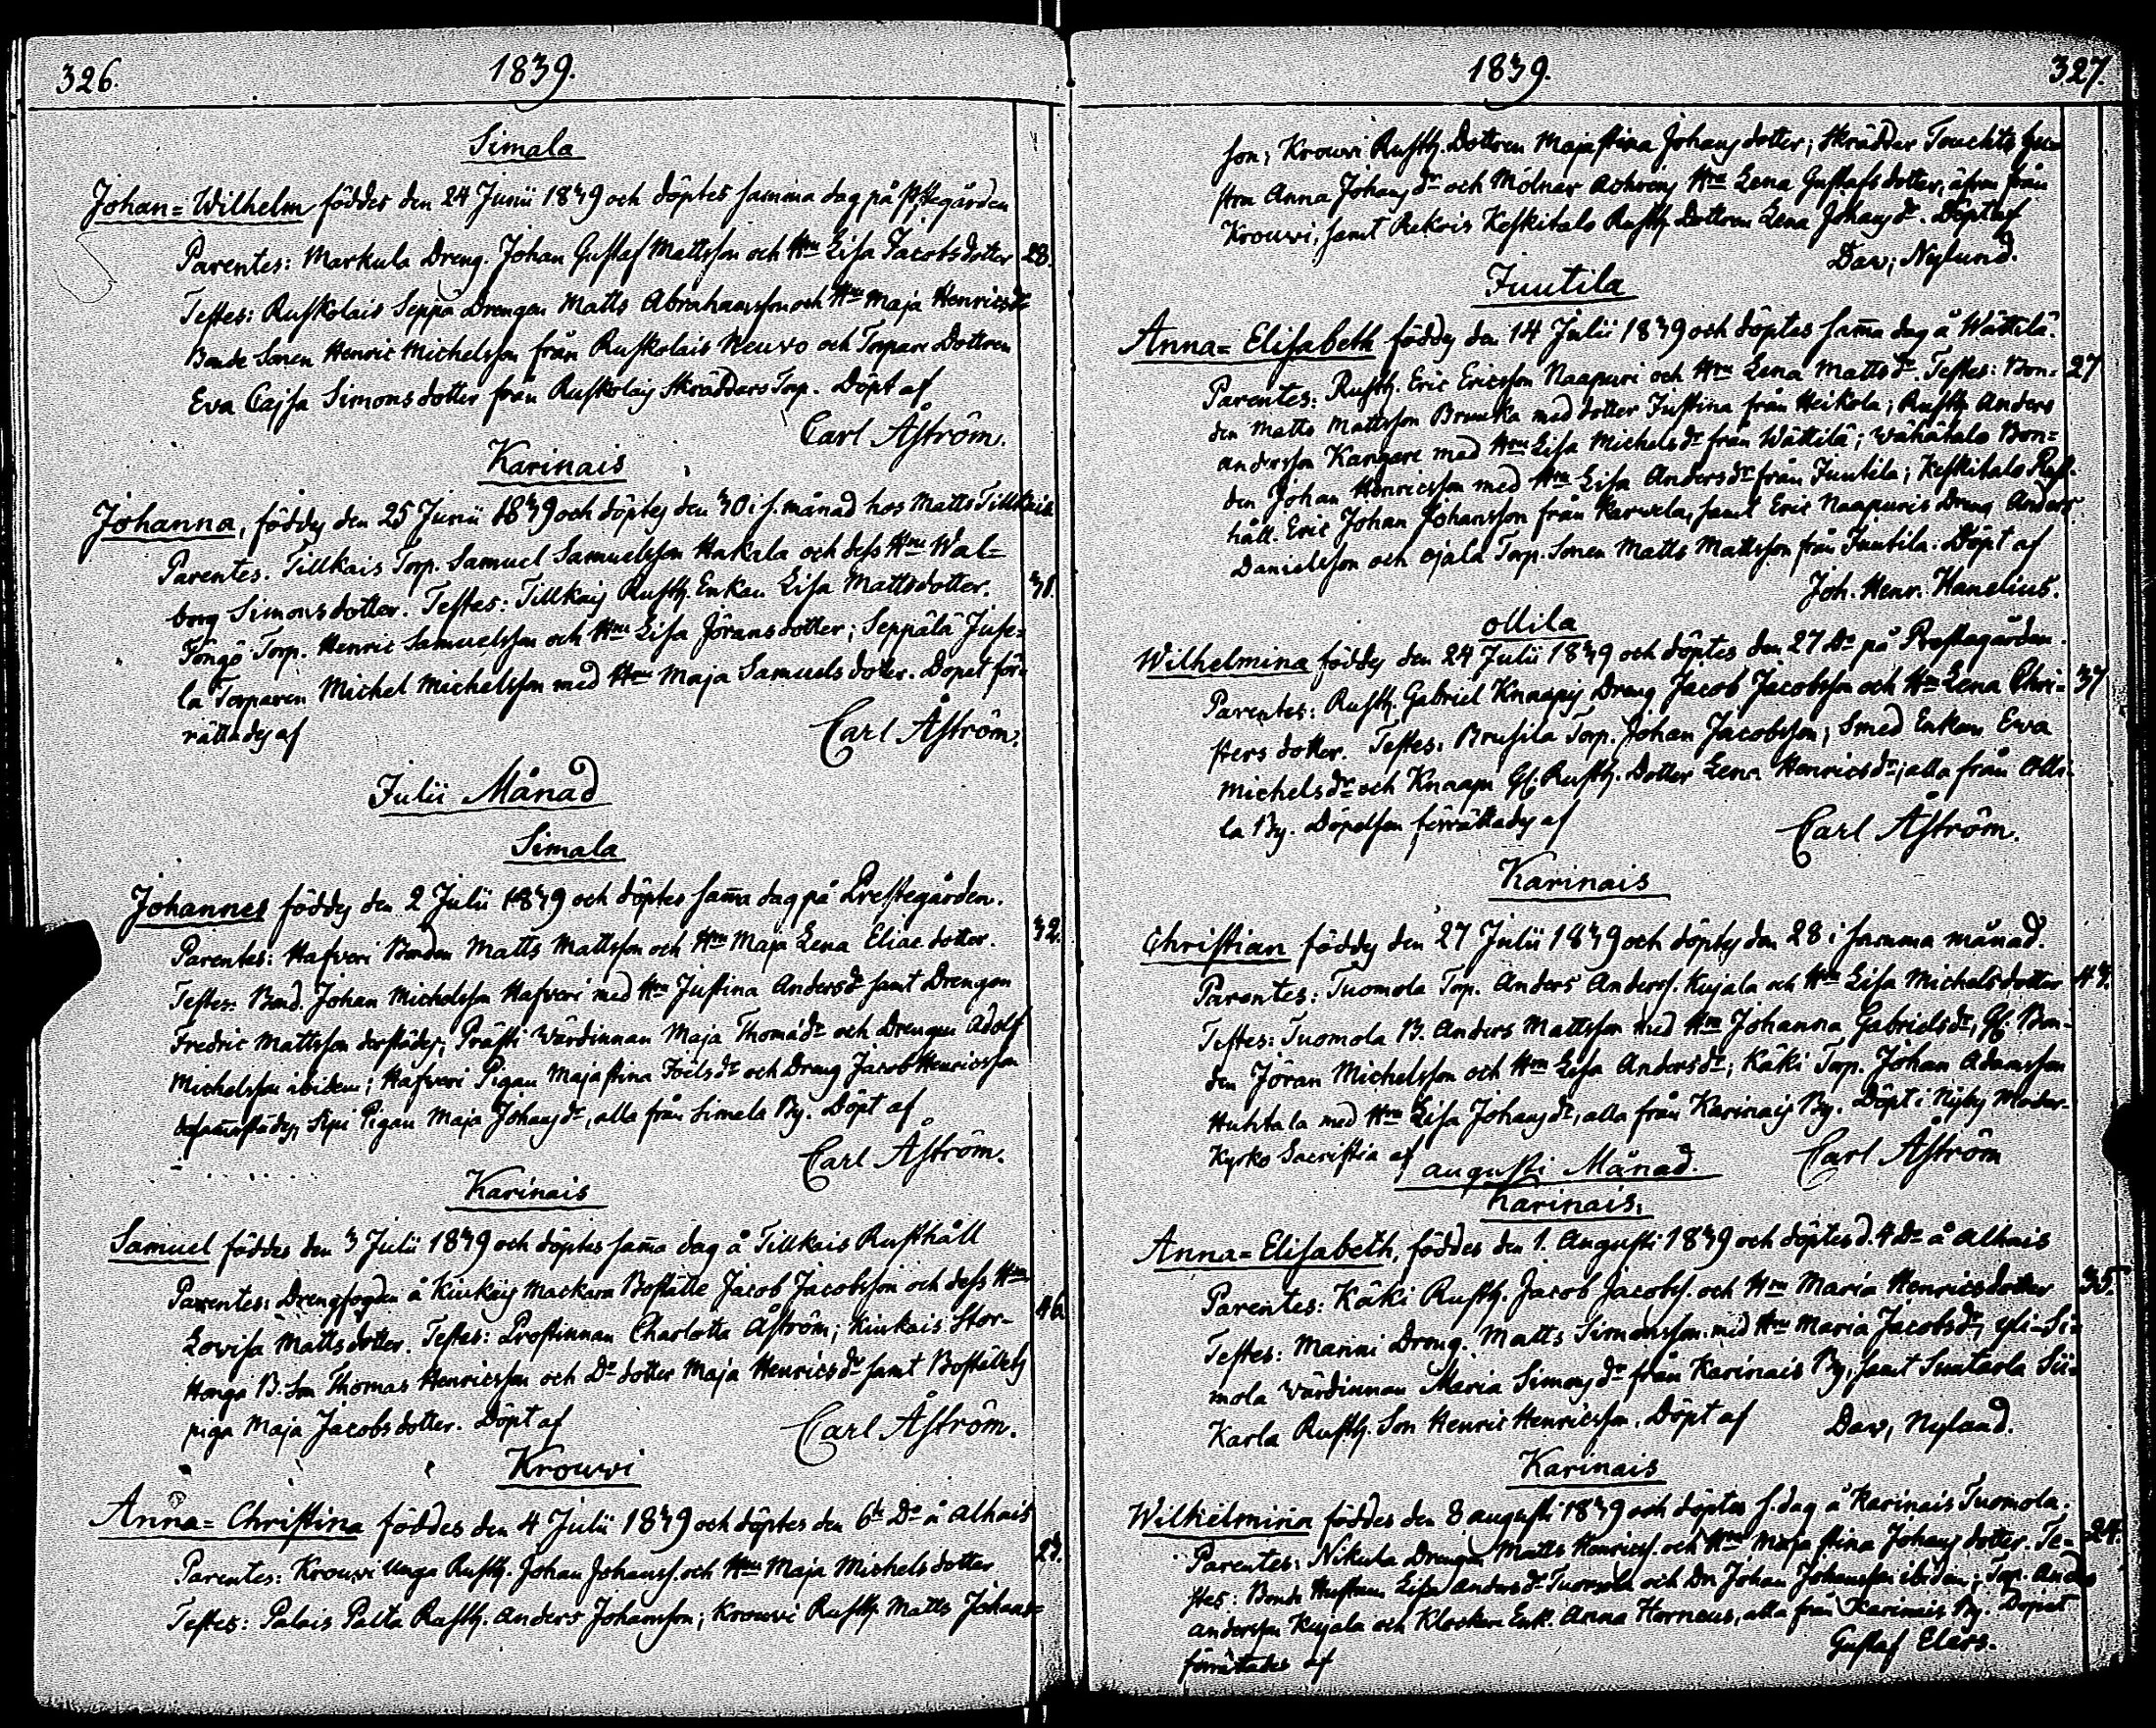 326.
1839.
Simala
Johan=Wilhelm föddes den 24 Junii 1839 och döptes samma dag på Pstegården
Parentes: Markula Dreng. Johan Gustaf Mattsson och Hru Lisa Jacobsdotter 28.
Testes: Ruskolais Seppä Drengen Matts Abrahamsson och Hru Maja Henricsdr
Bonde Sonen Henric Michelsson från Ruskolais Neuvo och Torpare Dottren
Eva Cajsa Simonsdotter från Ruskolais Skräddars Torp. Döpt af
Carl Åström.
Karinais
Johanna, föddes den 25 Junii 1839 och döptes den 30 i s. månad hos Matts Tillkais
Parentes. Tillkais Torp. Samuel Samuelsson Hakala och dess Hru Wal=
borg Simonsdotter. Testes: Tillkais Rusth. Enkan Lisa Mattsdotter. 38.
Töngö Torp. Henric Samuelsson och Hru Lisa Göransdotter; Seppälä Juse=
la Torparen Michel Michelsson med Hru Maja Samuelsdotter. Dopet för=
rättades af
Carl Åström.
Julii Månad
Simala
Johannes föddes den 2 Julii 1839 och döptes sama dag på Prestegården.
Parentes: Hafveri Bonden Matts Mattsson och Hru Maja Lena Eliae dotter. 32.
Testes: Bond. Johan Michelsson Hafveri med Hru Justina Andersdr samt Drengen
Fredric Mattsson derstädes; Prästi Wärdinnan Maja Thomædr och Drengen Adolf
Michelsson ibidem; Hafveri Pigan Majastina Joëlsdr och Dreng Jacob Henricsson
desamstädes, Sipi Pigan Maja Johansdr, alla från Simala By. Döpt af
Carl Åström.
Karinais
Samuel föddes den 3 Julii 1839 och döptes sama dag å Tillkais Rusthåll
Parentes: Drengfogden å Kiukais Mackara Boställe Jacob Jacobsson och dess Hru
Lovisa Mattsdotter. Testes: Prostinnan Charlotta Åström; Kiukais Stor= 46
Honga B. Son Thomas Henricsson och Do dotter Maja Henricsdr samt Boställets
piga Maja Jacobsdotter. Döpt af
Carl Åström.
Krouwi
Anna=Christina föddes den 4 Julii 1839 och döptes den 6te Do å Alhais
Parentes: Krouwi unga Rusth. Johan Johanss. och Hru Maja Michelsdotter 23.
Testes: Palais Palta Rusth. Anders Johansson; Krouwi Rusth. Matts Johans=
1839.
327.
son; Krouwi Rusth. Dottren Majastina Johansdotter; Skräddar Hu=
stru Anna Johansdr och Mölnar Hru Lena Gustafsdotter, äfven från
Krouwi, samt Rekois Keskitalo Rusth. Dottren Lena Johansdr. Döpt af
Dav; Nylund.
Juutila
Anna=Elisabeth föddes den 14 Julii 1839 och döptes sama dag å Wättilä.
Parentes: Rusth. Eric Ericsson Naapuri och Hru Lena Mattsdr. Testes: Bon= 27
den Matts Mattsson Bruuka med dotter Justina från Heikola; Rusth. Anders
Andersson Kangare med Hru Lisa Michelsdr från Wättilä; Wähätalo Bon=
den Johan Henricsson med Hru Lisa Andersdr från Juutila; Keskitalo Rust=
håll. Eric Johan Johansson från Karvela, samt Eric Naapuris Dreng Anders
Danielsson och Ojala Torp. Sonen Matts Mattsson från Juutila. Döpt af
Joh. Henr. Hanelius.
Ollila
Wilhelmina föddes den 24 Julii 1839 och döptes den 27 Do på Prestegården.
Parentes: Rusth. Gabriel Knaapis Dreng Jacob Jacobsson och Hru Lena Chri= 37
sters dotter. Testes: Brusila Torp. Johan Jacobsson; Smed Enkan Ewa
Michelsdr och Knaapi Gl. Rusth. Dotter Lena Henricsdr; alla från Olli=
la By. Döpelsen förrättades af
Carl Åström.
Karinais
Christian föddes den 27 Julii 1839 och döptes den 28 i samma månad.
Parentes: Tuomola Torp. Anders Anderss. Kujala och Hru Lisa Michelsdotter 43.
Testes: Tuomola B. Anders Mattsson med Hru Johanna Gabrielsdr; Gl. Bon=
den Jöran Michelsson och Hru Lisa Andersdr; Käki Torp. Johan Adamsson
Huhtala med Hru Lisa Johansdr, alla från Karinais By. Döpt i Nykyrko Moder=
Kyrko Sacristia af
Carl Åström
Augusti Månad.
Karinais.
Anna=Elisabeth, föddes den 1. Augusti 1839 och döptes d. 4 Do å Alhais
Parentes: Käki Rusth. Jacob Jacobss. och Hru Maria Henricsdotter 35.
Testes: Manni Dreng. Matts Simonsson med Hru Maria Jacobsdr, Yli-Si=
mola Wärdinnan Maria Simonsdr från Karinais By, samt Suutarla Sii=
Karla Rusth. Son Henric Henricsson. Döpt af
Dav; Nylund.
Karinais
Wilhelmina föddes den 8 Augusti 1839 och döptes s. dag å Karinais Tuomola.
Parentes: Nikula Drengen Matts Henricss. och Hru Majastina Johansdotter. Te= 24.
stes: Bonde Hustrun Lisa Andersdr Tuomola och Dr. Johan Johansson ibidem; Torp. Anders
Andersson Kujala och Klockare Enk. Anna Horneus, alla från Karinais By. Dopet
förrättades af
Gustaf Elers.